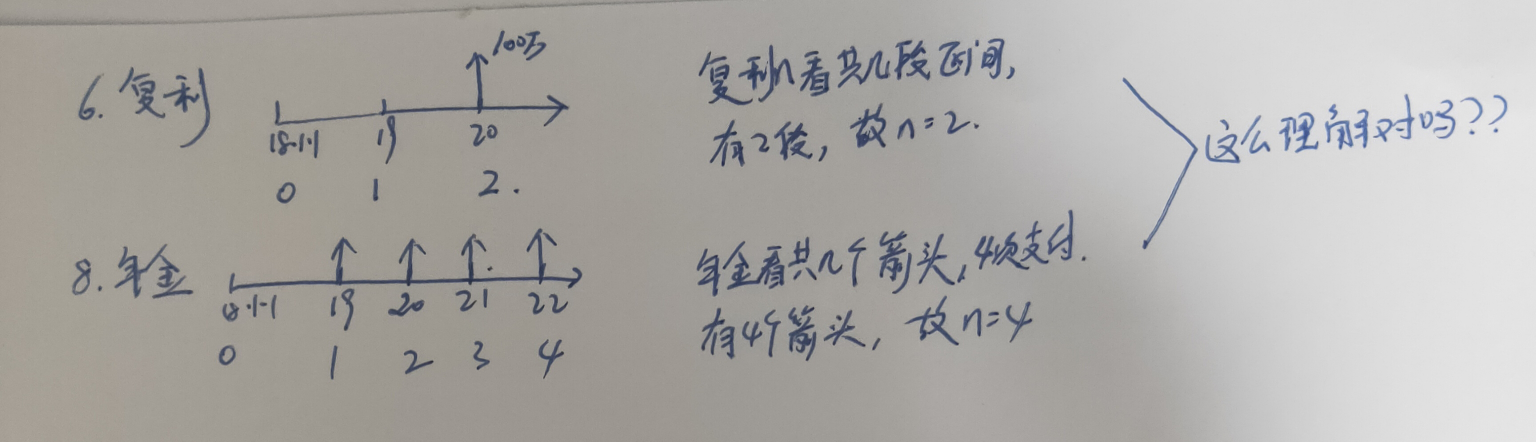 6. 复利
100万
18.1.1 19 20
0 1 2.
复利n看共几段区间,
有2段, 故n=2.
8. 年金
18.1.1 19 20 21 22
0 1 2 3 4
年金看共几个箭头, 4次支付.
有4个箭头, 故n=4
这么理解对吗??